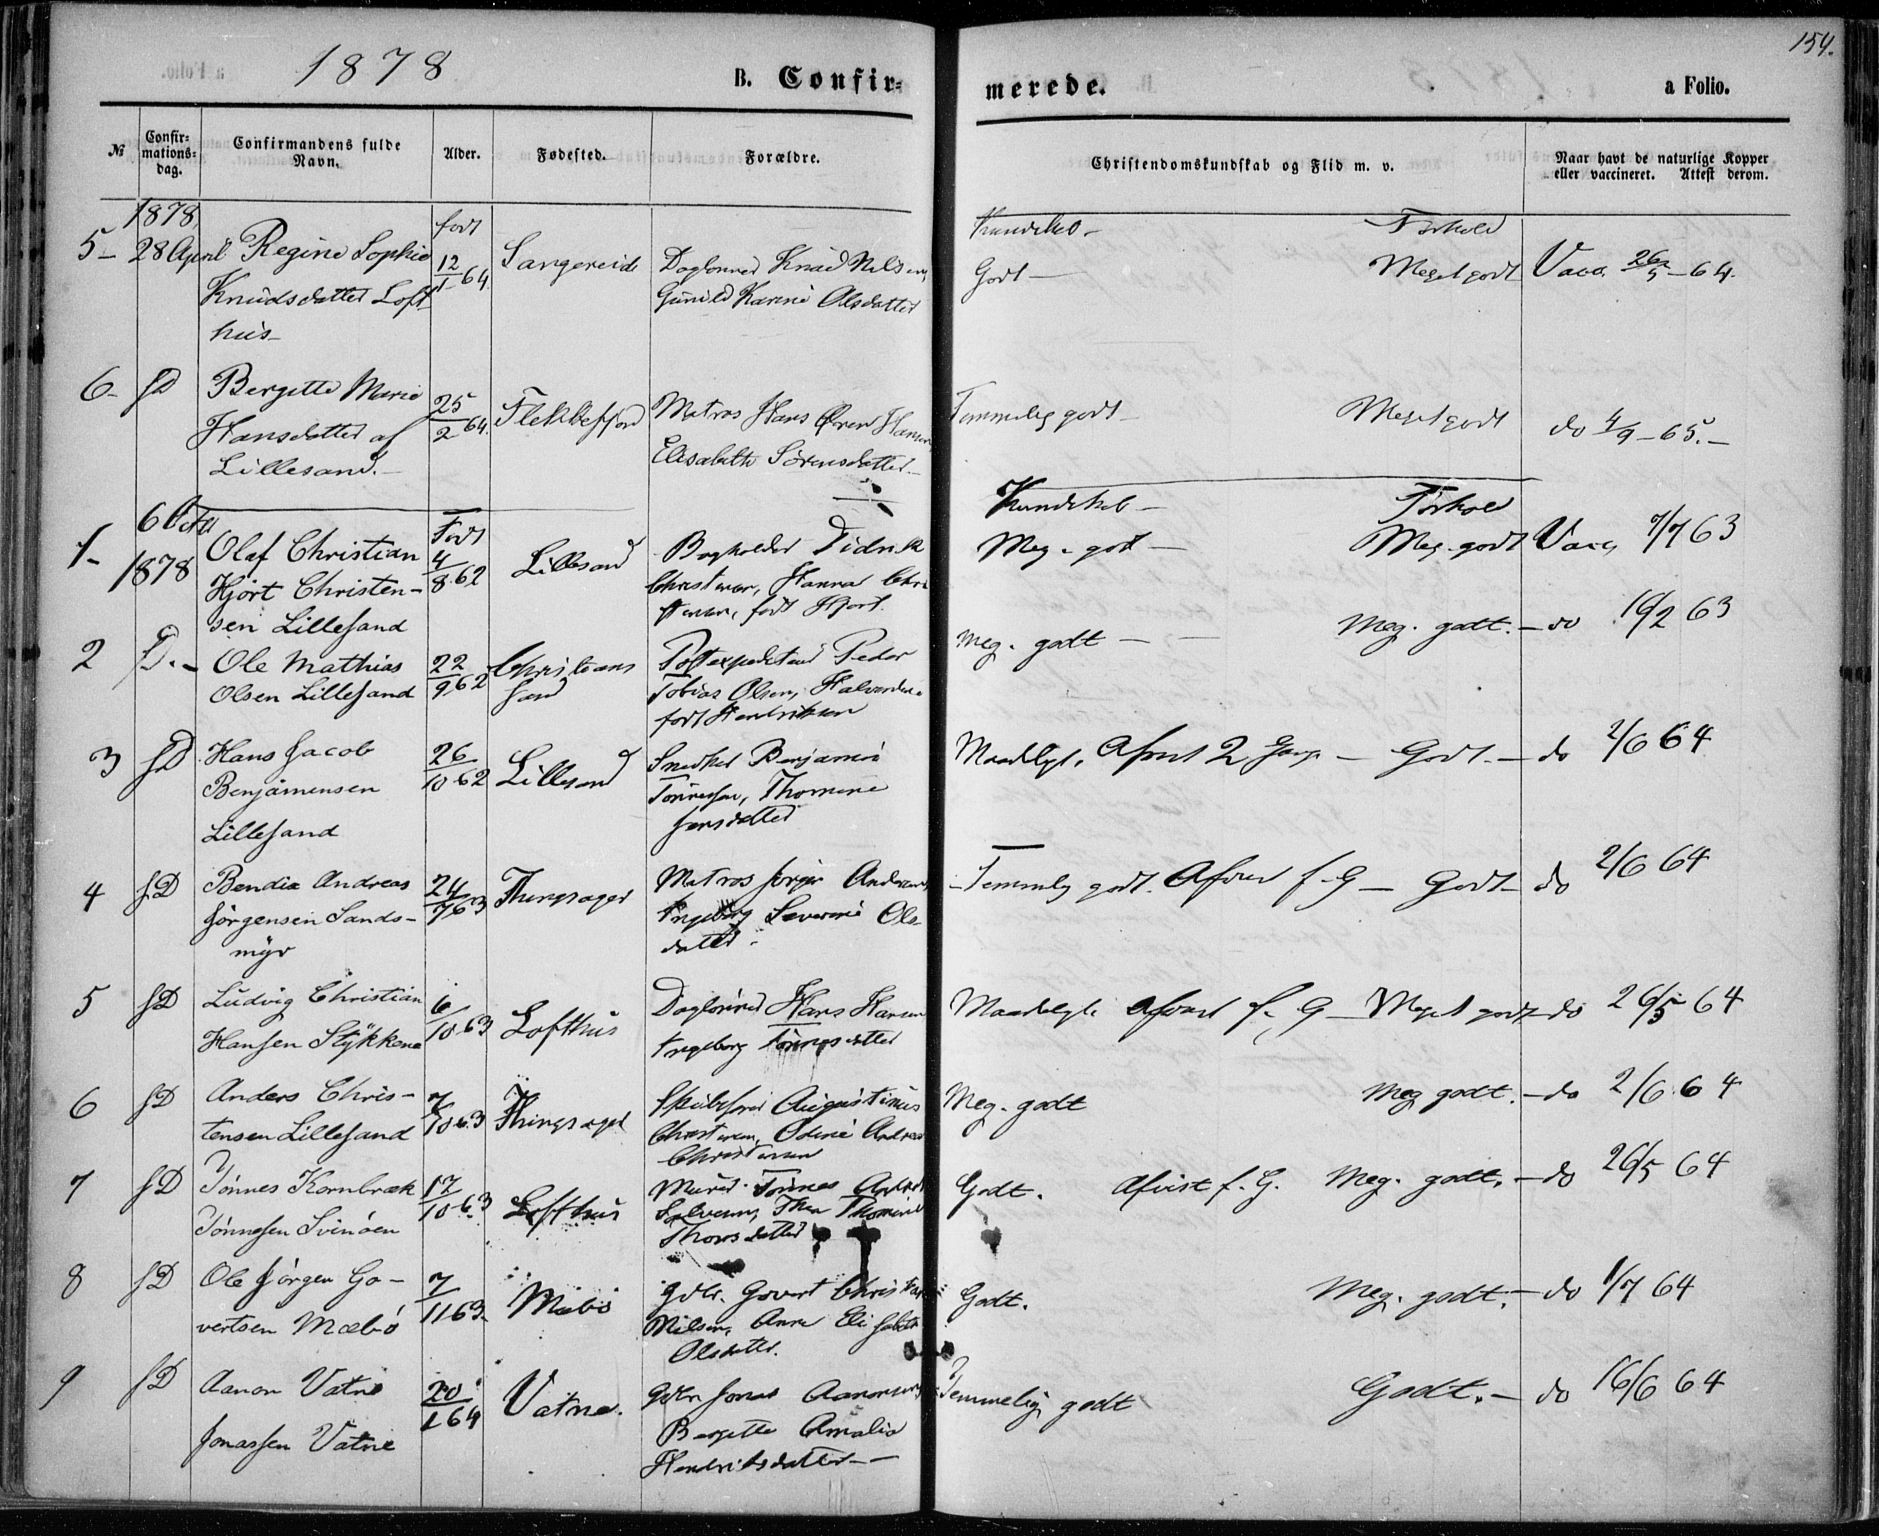 1878
B. Confir=
merede.
a Folio.
154.
№
Confir=
mations=
dag.
Confirmandens fulde
Navn.
Alder.
Fødested.
Forældre.
Christendomskundskab og Flid m. v.
Naar havt de naturlige Kopper
eller vaccineret. Attest derom.
1878
født
Kundskab –
Forhold
5 – 28 April Regine Sophie 12/1 64 Sangereid Daglønner Knud Nilsen, Godt – Meget godt Vacc. 26/5 – 64.
Knudsdatter Loft
Gunild Karine Olsdatter
hus –
6 – sD Bergitte Marie 25/2 64. Flekkefjord Matros Hans Hansen, Temmelig godt – Meget godt do 4/9 – 65. –
Hansdatter af
Elisabeth Sørensdatter –
Lillesand. –
6 Octo
Født
Kundskab –
Forhold
1 – 1878 Olaf Christian 4/8 62 Lillesand Bogholder Didrik Meg. godt – Meg. godt Vacc. 7/7 63
Hjort Christen-
Christensen, Hanna Chri
sen Lillesand
stensen, født Hjort.
2 D. – Ole Mathias 22/9 62 Christians Postexpeditør Peder Meg. godt – – Meg. godt. – do 16/2 63
Olsen Lillesand
sand
Tobias Olsen,
født Hendriksen
3 sD Hans Jacob 26/10 62 Lillesand Snedker Benjamin Maadeligt. Afvist 2 Gange – Godt. – do 2/6 64
Benjaminsen
Tønnessen, Thomine
Lillesand
Jensdatter
4 sD Bendix Andreas 24/7 63 Thingsager Matros Jørgen Andersen, Temmelig godt. Afvist f. G – Godt – do 2/6 64
Jørgensen Sands-
Ingeborg Severine Ols
myr
datter.
5 sD Ludvig Christian 6/10 63 Lofthus Daglønner Hans Hansen Maadeligt afvist f. G – Meget godt – do 26/5 64
Hansen Stykkene
Ingeborg Tønnesdatter
6 sD Anders Chris- 7/10 63 Thingsager Augustinus Meg. godt Meg godt. – do 2/6 64
tensen Lillesand
Christensen, Andrea
Christensen
7 sD Tønnes Kornbræk 17/10 63 Lofthus Murer Tønnes Meg. godt. – do 26/5 64
Godt. Afvist f. G.
Tønnesen Svinøen
Thomine
Thorsdatter
8 sD Ole Jørgen Go- 7/11 63. Mæbø Gdbr. Govert Christian Godt. Meg. godt. – do 1/7 64
vertsen Mæbø
Nilsen, Anne Elisabeth
Olsdatter.
9 sD Aanon Vatne 20/1 64 Vatne. Gdbr Jonas Aanonsen, Temmelig godt Godt. – do 16/6 64
Jonassen Vatne
Bergitte Amalia
Hendriksdatter –